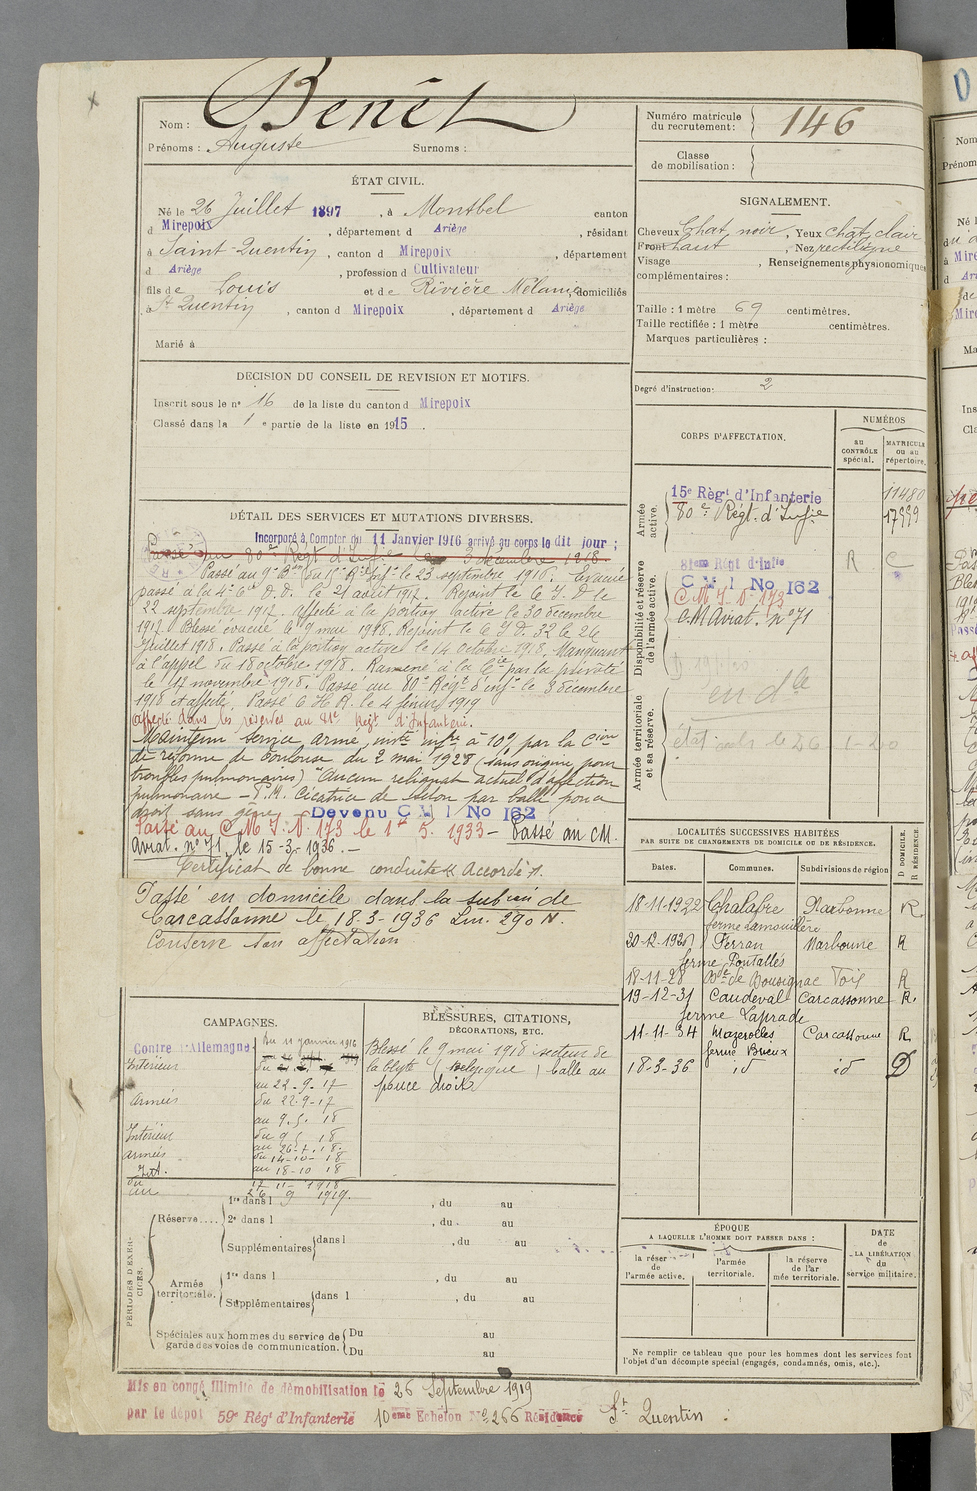 Nom : Benêt
Prénoms : Auguste Surnoms :
ÉTAT CIVIL.
Né le 26 Juillet 1897, à Montbel canton
d Mirepoix, département d Ariège, résidant
à Saint-Quentin, canton d Mirepoix, département
d Ariège, profession d Cultivateur
fils de Louis et de Rivière Mélanie, domiciliés
à St Quentin, canton d Mirepoix, département d Ariège
Marié à
DECISION DU CONSEIL DE REVISION ET MOTIFS.
Inscrit sous le n° 16 de la liste du canton d Mirepoix
Classé dans la 1e partie de la liste en 1915.
DÉTAIL DES SERVICES ET MUTATIONS DIVERSES.
Incorporé à Compter du 11 Janvier 1916 arrivé au corps le dit jour ;
Passé au 80e Régt d'Infie le 3 décembre 1918
Passé au 9e Bon du Régt Inf le 23 septembre 1916. Evacué
passé à la 4e Cie D. D. le 21 août 1917. Rejoint le C. I. D le
22 septembre 1917. affecté à la portion active le 30 décembre
1917. Blessé évacué le 9 mai 1918. Rejoint le C I D. 32 le 26
Juillet 1918. Passé à la portion active le 14 octobre 1918. Manquant
à l'appel du 18 octobre 1918. Ramené à la Cie par la prévôté
le 12 novembre 1918. Passé au 80e Régt d'inf le 3 décembre
1918 et affecté. Passé C H R. le 4 février 1919
affecté dans les réserves au 81e Régt d'Infanterie.
Maintenu service armé, invté infre à 10% par la Cion
de réforme de Toulouse du 2 mai 1928 (sans origine pour
troubles pulmonaires) "Aucun reliquat actuel d'affection
pulmonaire - P.M. Cicatrice de séton par balle pouce
droit sans gêne. Devenu C M I No 162
Passé au C M I N° 173 le 1er 5. 1933 - Passé au CM.
Aviat. n° 71, le 15-3-1936. -
Certificat de bonne conduite "Accordé".
Passé en domicile dans la subion de
Carcassonne le 18-3-1936 Lm. 290 N.
Conserve son affectation
CAMPAGNES.
Contre l'Allemagne du 11 janvier 1916
Intérieur
au 22-9-17
Armées du 22-9-17
au 9.5. 18
Intérieur du 9 5 18
au 26-7.18.
armées du 14-10-18
Int. au 18-10 18
du 12 11- 1918
au 26 9 1919.
BLESSURES, CITATIONS,
DÉCORATIONS, ETC.
Blessé le 9 mai 1918 : secteur de
la Clyte (Belgique) balle au
pouce droit
PÉRIODES D'EXERCICES.
Réserve....
1re dans l , du au
2e dans l , du au
Supplémentaires dans l , du au
Armée territoriale.
1re dans l , du au
Supplémentaires dans l , du au
Spéciales aux hommes du service de garde des voies de communication.
Du au
Du au
Mis en congé illimité de démobilisation le 26 Septembre 1919
par le dépôt 59e Régt d'Infanterie 10eme Echelon No 266 Résidence St Quentin.
Numéro matricule
du recrutement: 146
Classe
de mobilisation :
SIGNALEMENT.
Cheveux Chat. noir, Yeux chat. clair
Front haut, Nez rectiligne
Visage , Renseignements physionomiques
complémentaires :
Taille : 1 mètre 69 centimètres.
Taille rectifiée : 1 mètre centimètres.
Marques particulières :
Degré d'instruction: 2
CORPS D'AFFECTATION.
NUMÉROS
au CONTRÔLE spécial.
MATRICULE ou au répertoire.
Armée active.
15e Règt d'Infanterie 11480
80e Régt. d'Infie 17999
Disponibilité et réserve de l'armée active.
81eme Régt d'Infie R C
C M I No 162
C M I N° 173
C.M Aviat. n° 71
Armée territoriale et sa réserve.
LOCALITÉS SUCCESSIVES HABITÉES
PAR SUITE DE CHANGEMENTS DE DOMICILE OU DE RÉSIDENCE.
Dates. Communes. Subdivisions de région D DOMICILE. R RÉSIDENCE.
18-11-1922 Chalabre Narbonne R.
ferme Lamouillère
20-12-1925 Ferran Narbonne R
ferme Pontallès
18-11-28 Foix R
19-12-31 Caudeval Carcassonne R.
ferme Laprade
11-11-34 Mazerolles Carcassonne R
ferme Brieux
18-3-36 id id D
ÉPOQUE
A LAQUELLE L'HOMME DOIT PASSER DANS :
la réserve de l'armée active.
l'armée territoriale.
la réserve de l'armée territoriale.
DATE de LA LIBÉRATION du service militaire.
Ne remplir ce tableau que pour les hommes dont les services font
l'objet d'un décompte spécial (engagés, condamnés, omis, etc.).